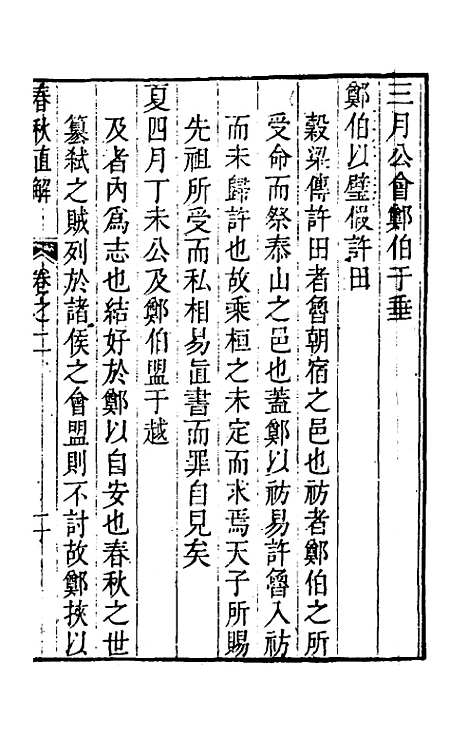 三月公會鄭伯于垂
鄭伯以璧假許田
穀梁傳許田者魯朝宿之邑也祊者鄭伯之所
受命而祭泰山之邑也蓋鄭以祊易許魯入祊
而未歸許也故乘桓之未定而求焉天子所賜
先祖所受而私相易直書而罪自見矣
夏四月丁未公及鄭伯盟于越
及者內為志也結好於鄭以自安也春秋之世
篡弒之賊列於諸侯之會盟則不討故鄭挾以
春秋直解 卷之二 二